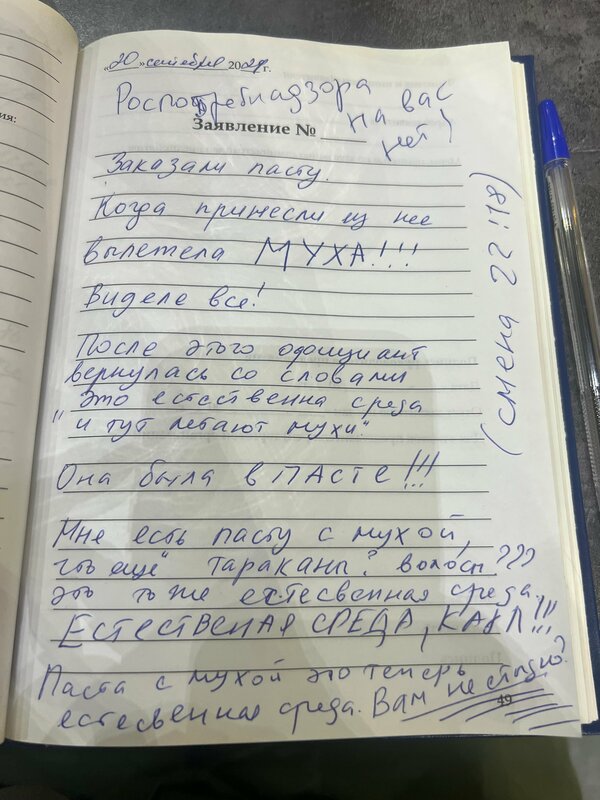 «20» сентября 2024г.
Роспотребнадзора
на вас
нет!
Заявление №
Заказали пасту.
Когда принесли из нее
вылетела МУХА!!!
Видели все!
После этого официант
вернулась со словами
"это естественна среда
и тут летают мухи".
Она была в ПАСТЕ!!!
Мне есть пасту с мухой,
что еще" тараканы? волосы???
это тоже естесвенная среда.
ЕСТЕСТВЕНАЯ СРЕДА, КАРЛ!!!
Паста с мухой это теперь
естесвенная среда. Вам не стыдно?
(смена 22:18)
49